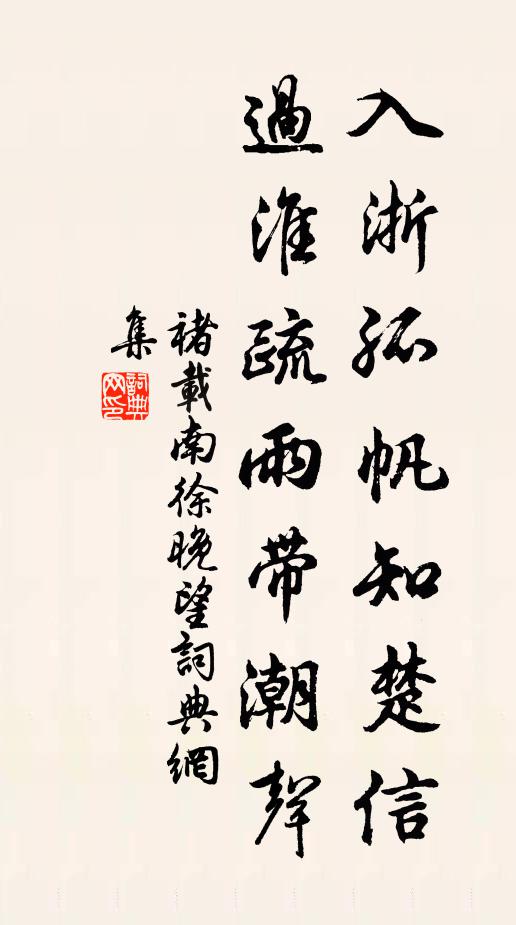 入浙孤帆知楚信
過淮疏雨帶潮聲
褚載南徐晚望詞典網
集
詞典
网印